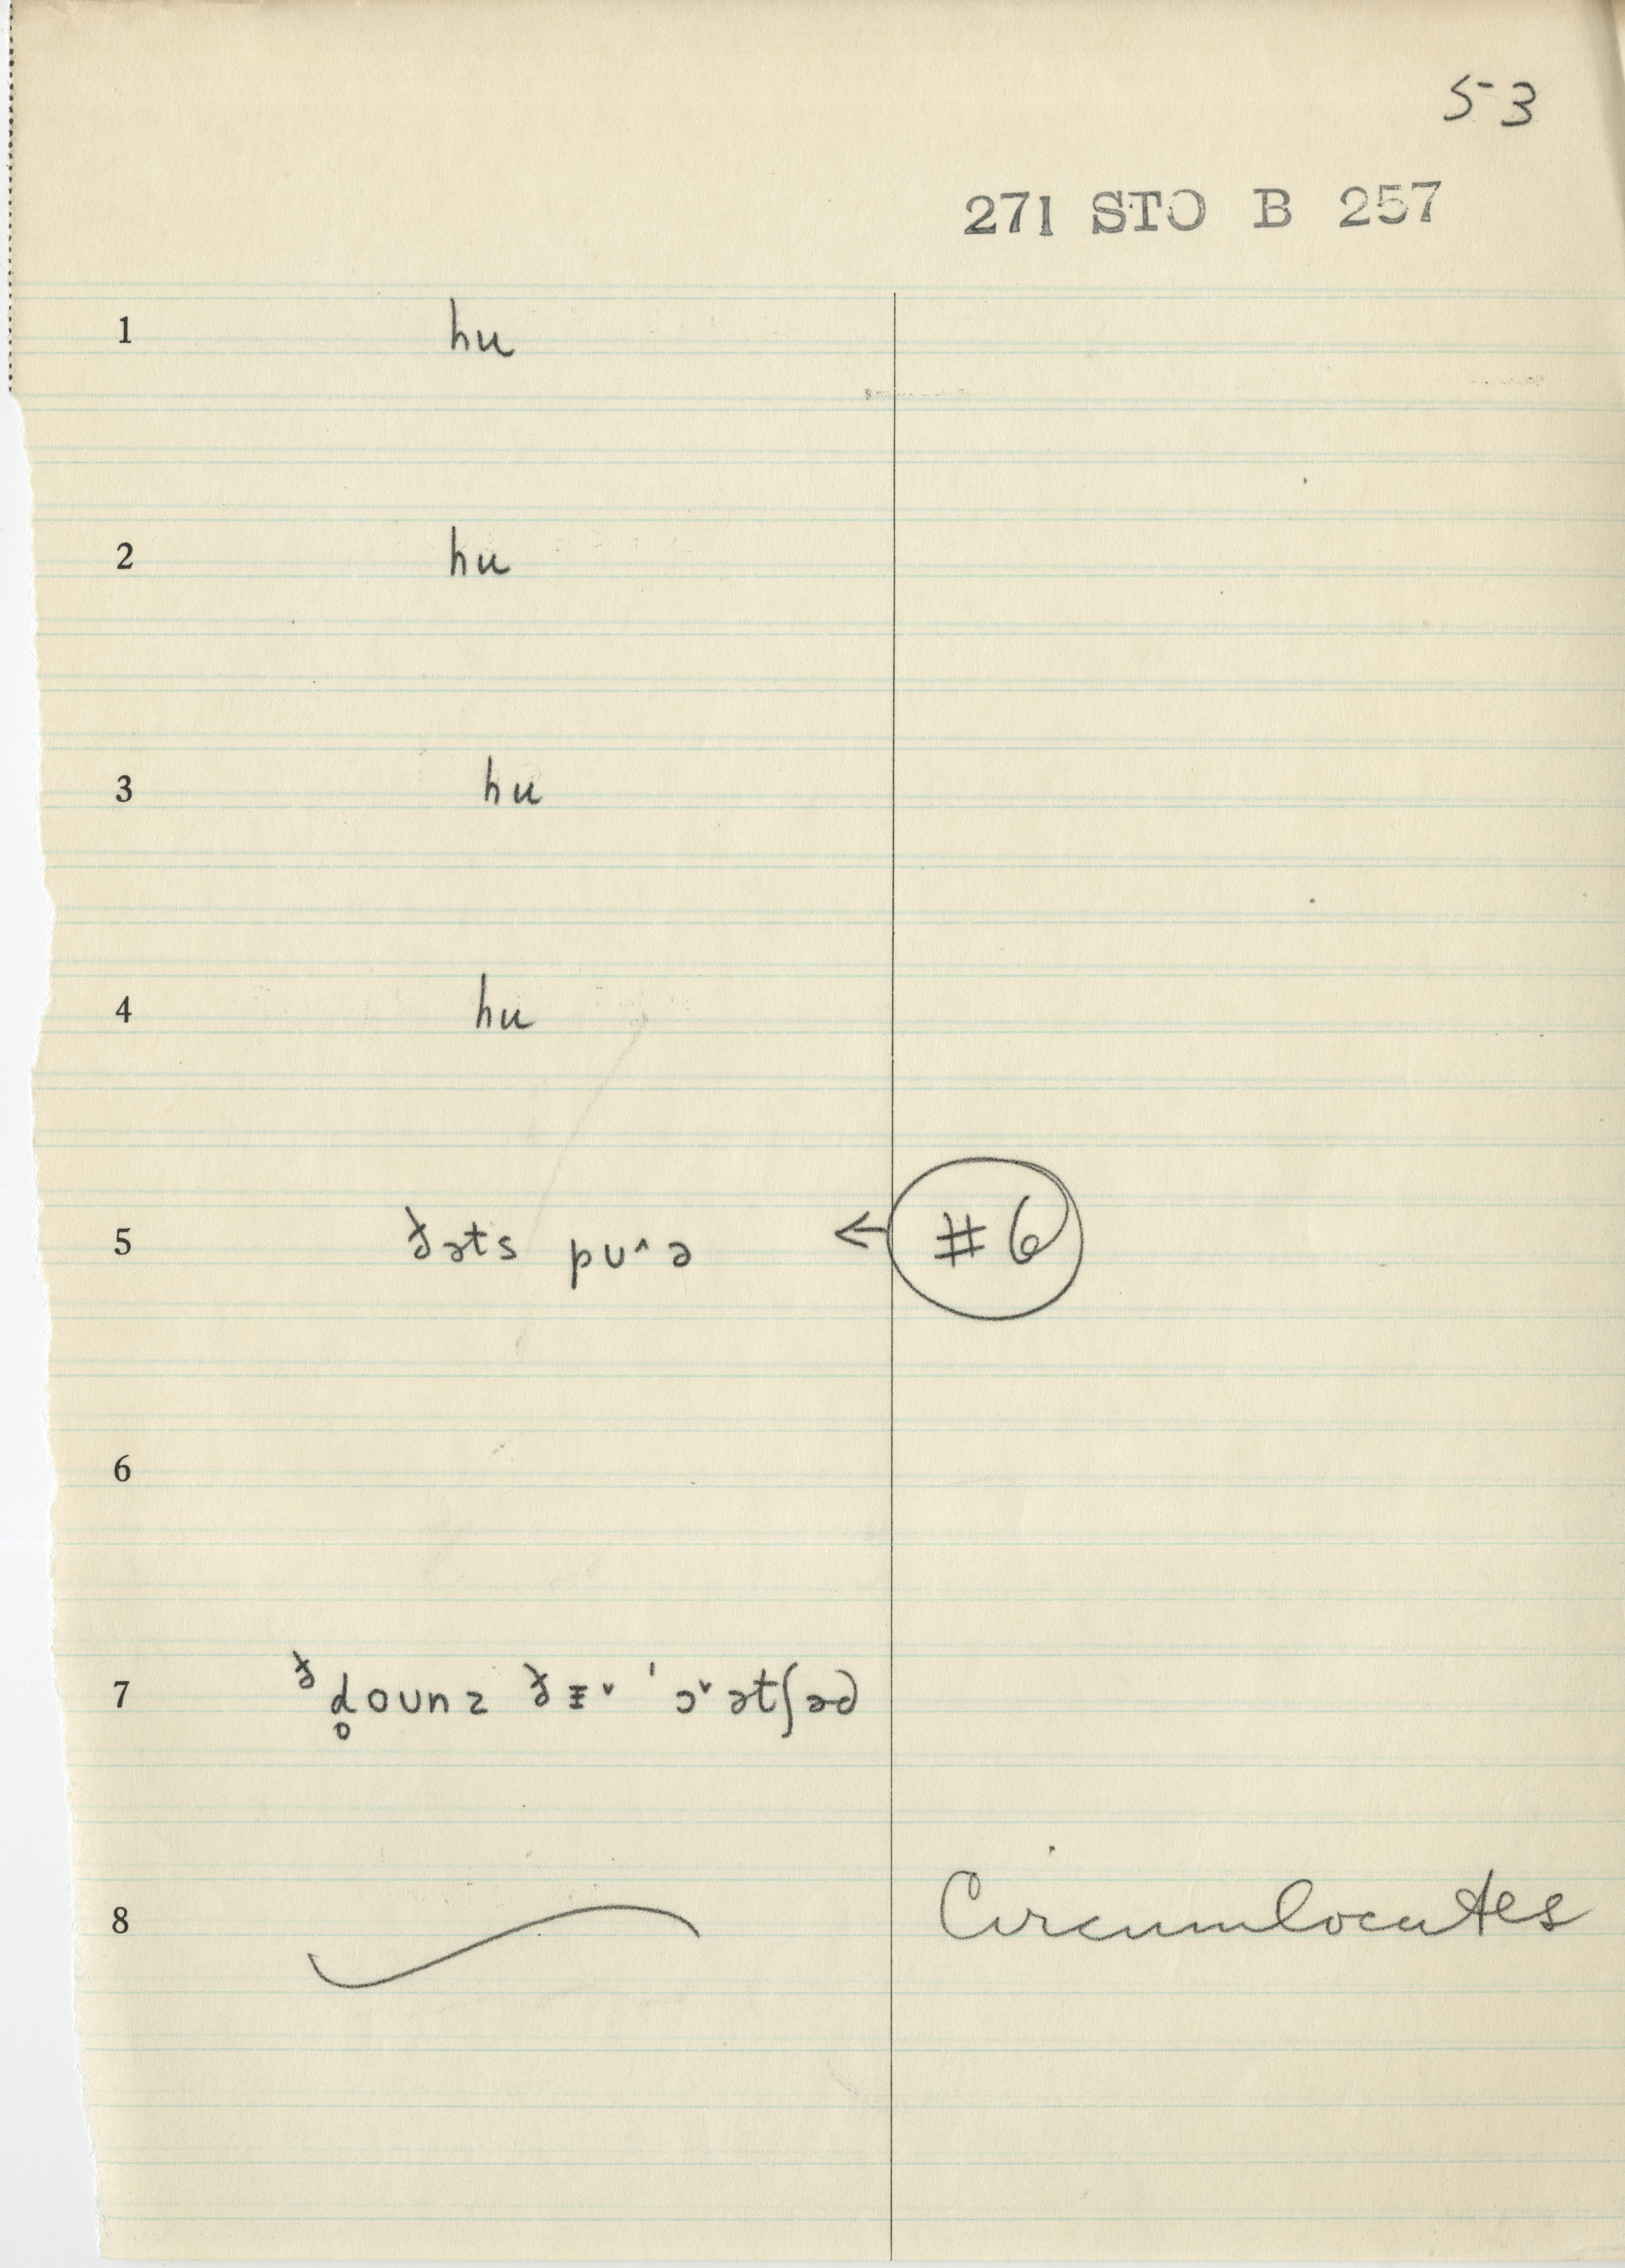 53
271 STO B 257
1 hu
2 hu
3 hu
4 hu
5 ðəts pʊ^ə ← #6
6
7 ð d̥oʊnz ðɪ˅ ˈɔ˅ətʃəd
8 Circumlocutes